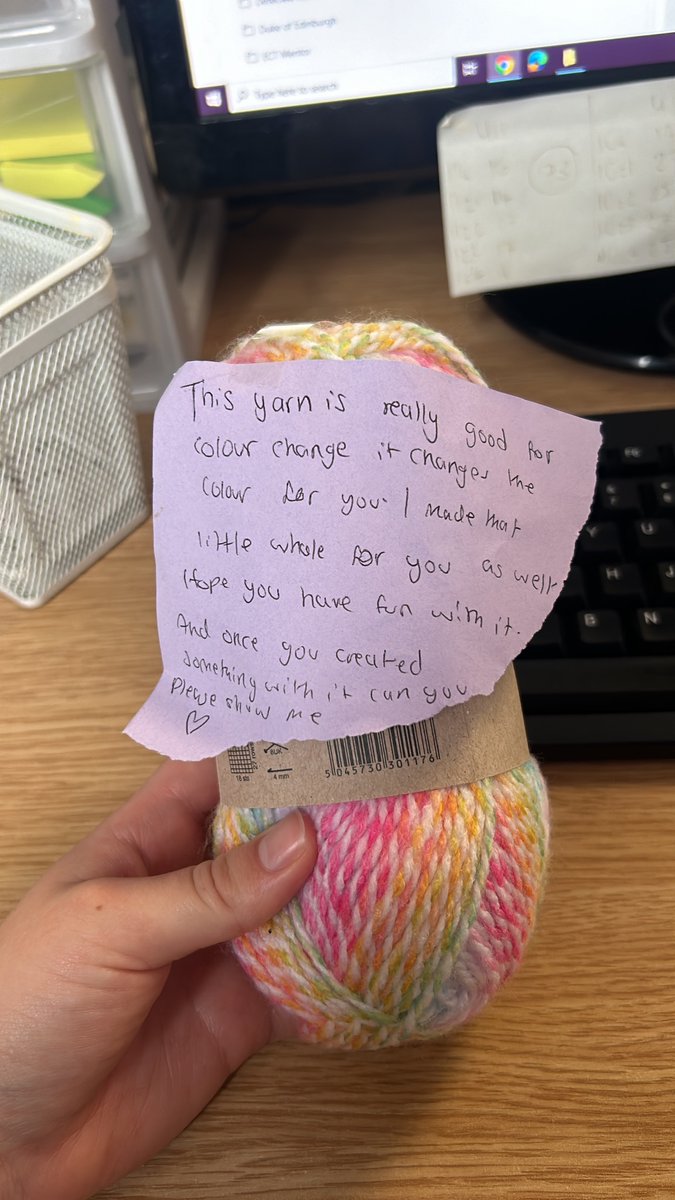 Duke of Edinburgh
ECT Mentor
Type here to search
This yarn is really good for
colour change it changes the
colour for you. I made that
little whole for you as well
I hope you have fun with it.
And once you created
something with it can you
Please show me
♡
8UK
18 sts
4 mm
5 045730 301176
Y
U
H
J
B
N